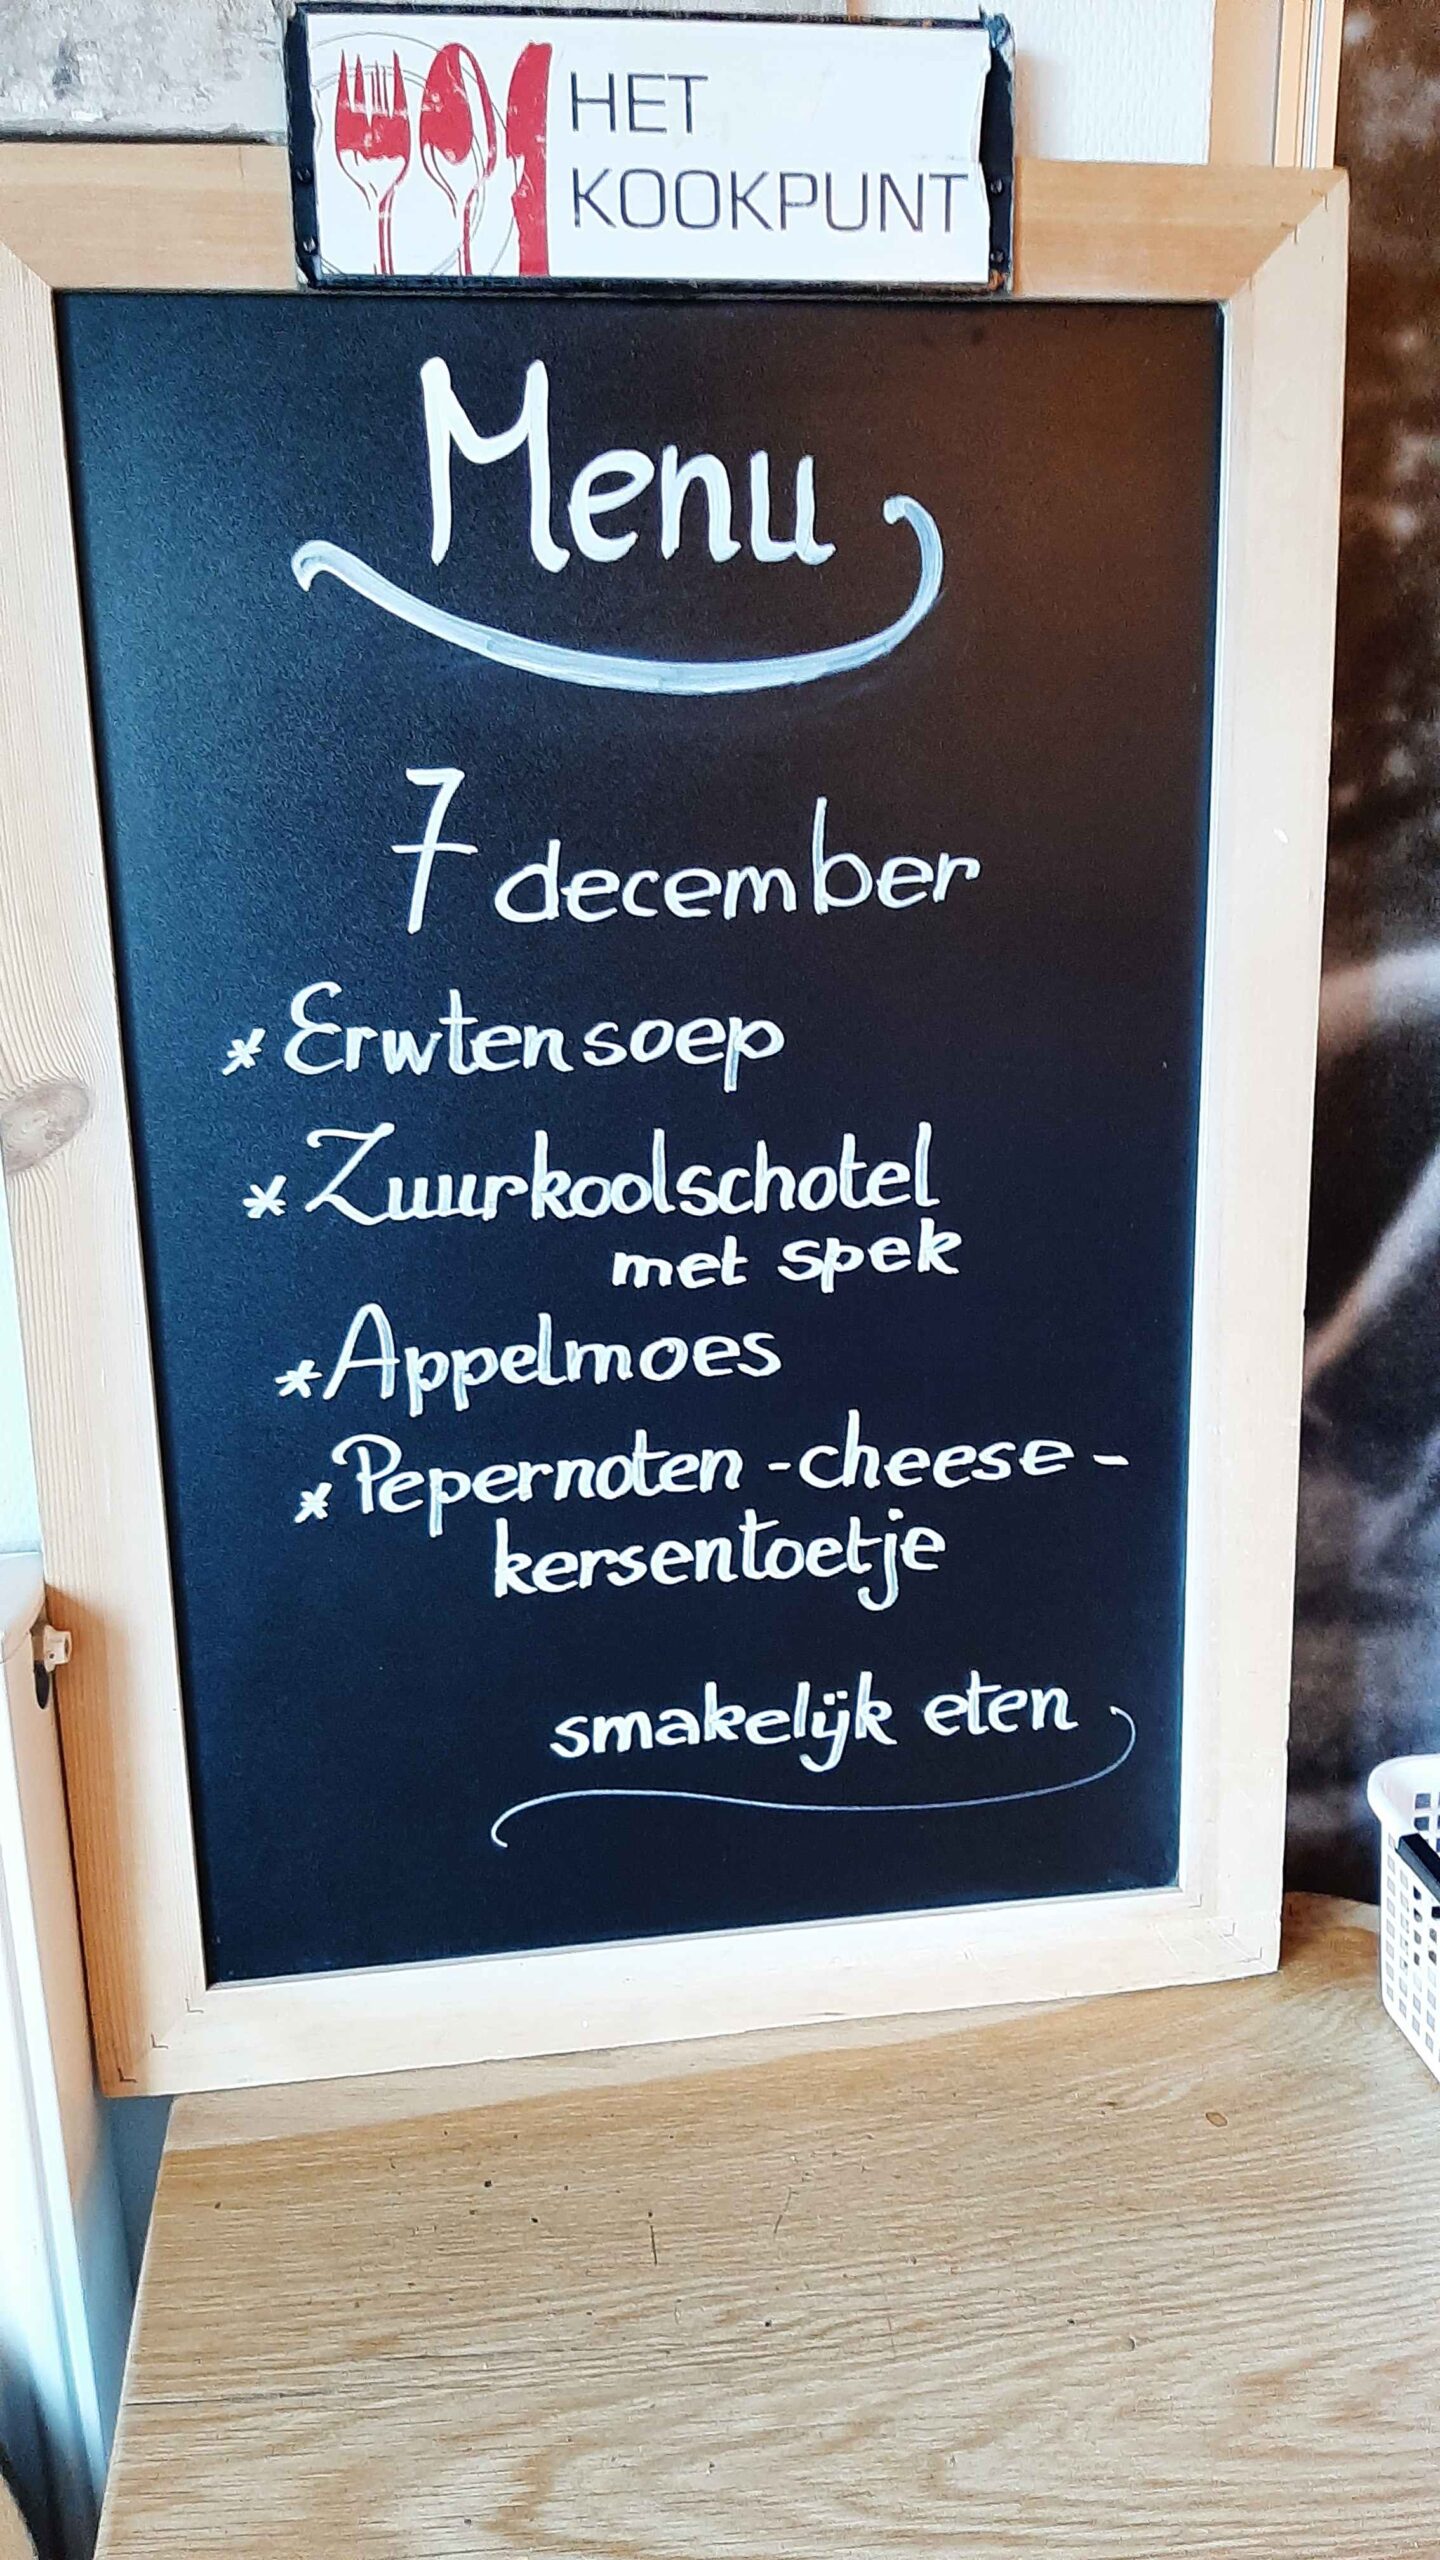 HET
KOOKPUNT
Menu
7 december
* Erwtensoep
* Zuurkoolschotel
met spek
* Appelmoes
* Pepernoten - cheese -
kersentoetje
smakelijk eten